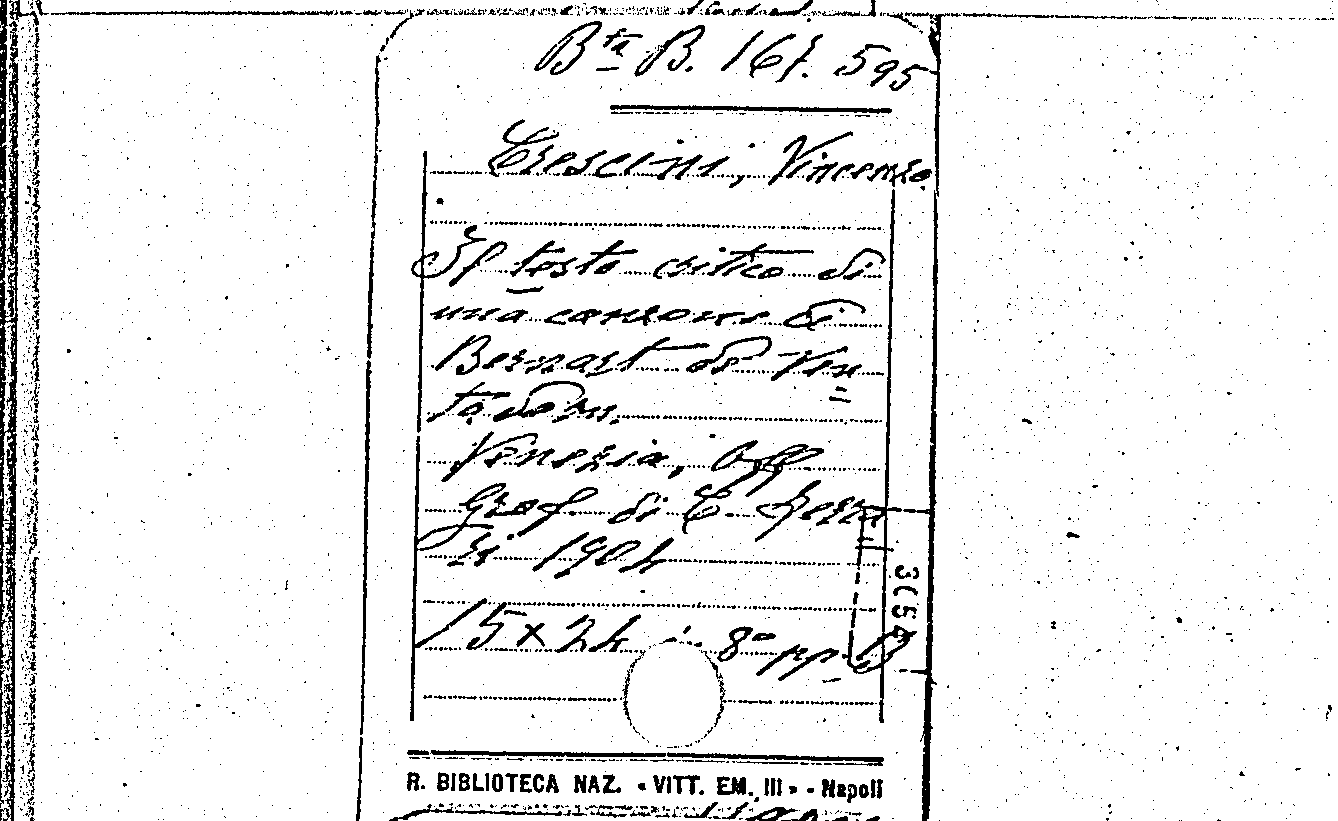 Bta B. 167. 595
Crescini, Vincenzo.
Il testo critico di
una canzone di
Bernart de Ven
tadorn.
Venezia, Off
Graf. di C. Ferra
ri 1904
15x24 in 8° pp.
3654
R. BIBLIOTECA NAZ. « VITT. EM. III » - Napoli